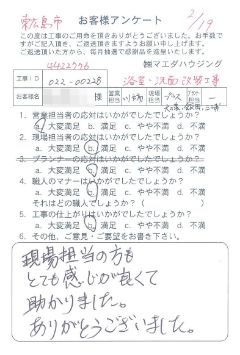 東広島市
お客様アンケート
2/19
この度は工事のご用命を頂きありがとうございました。お手数で
すがご記入頂き、ご返送頂きますようお願い申し上げます。
ご返送頂いた方に、毎月抽選で感謝品を進呈いたします。
㈱マエダハウジング
工事ID 022-00228 浴室・洗面改修工事
お客様名 様 営業担当 現場担当
1. 営業担当者の応対はいかがでしたでしょうか?
a. 大変満足 b. 満足 c. やや不満 d. 不満
2. 現場担当者の応対はいかがでしたでしょうか?
a. 大変満足 b. 満足 c. やや不満 d. 不満
3. プランナーの応対はいかがでしたでしょうか?
a. 大変満足 b. 満足 c. やや不満 d. 不満
4. 職人のマナーはいかがでしたでしょうか?
a. 大変満足 b. 満足 c. やや不満 d. 不満
それはどの職人でしょうか? ( )
5. 工事の仕上がりはいかがでしたでしょうか?
a. 大変満足 b. 満足 c. やや不満 d. 不満
6. その他、ご意見・ご要望をお書き下さい。
現場担当の方も
とても感じが良くて
助かりました。
ありがとうございました。